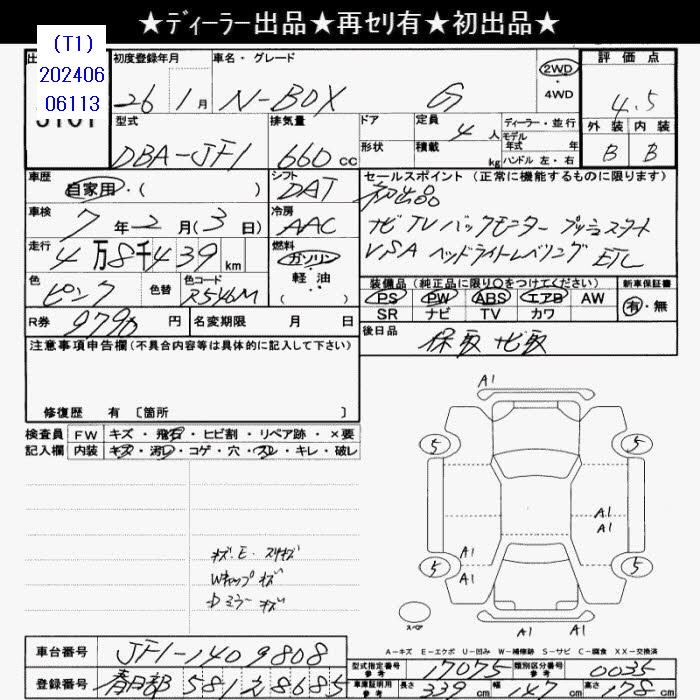 ★ﾃﾞｨｰﾗｰ出品★再ｾﾘ有★初出品★
(T1)
202406
06113
初度登録年月 車名・グレード 2WD・4WD 評価点
26 1月 N-BOX G 4.5
型式 排気量 ドア 定員 4人 ディーラー・並行 外装 内装
DBA-JF1 660cc 形状 積載 kg モデル年式 年 ハンドル 左・右 B B
車歴 シフト セールスポイント (正常に機能するものに限ります)
自家用・( ) DAT 初出品
車検 冷房 ナビ TV バックモニター プッシュスタート
7年2月(3日) AAC VSA ヘッドライトレベリング ETC
走行 燃料
4万8千439km ガソリン・軽油・( )
色 色替 色コード 装備品 (純正品に限り○をつけてください) 新車保証書
ピンク R546M PS PW ABS エアB AW 有・無
SR ナビ TV カワ
R券 9790円 名変期限 月 日 後日品
保取 ナビ取
注意事項申告欄(不具合内容等は具体的に記入して下さい)
修復歴 有 〔箇所 〕
検査員 FW キズ・飛石・ヒビ割・リペア跡・×要
記入欄 内装 キズ・汚レ・コゲ・穴・スレ・キレ・破レ
A1
5 5
A1
A1
A1 A1
5 5
A1 A1
スペア
キズ.E・スリキズ
Wキャップキズ
中ミラーキズ
A-キズ E-エクボ U-凹み W-補修跡 S-サビ C-腐食 XX-交換済
車台番号 JF1-1409808
型式指定番号 参考 17075 類別区分番号 参考 0035
登録番号 春日部 581 2 8685
車庫証明用 参考 長さ 339cm 幅 147cm 高さ 178cm